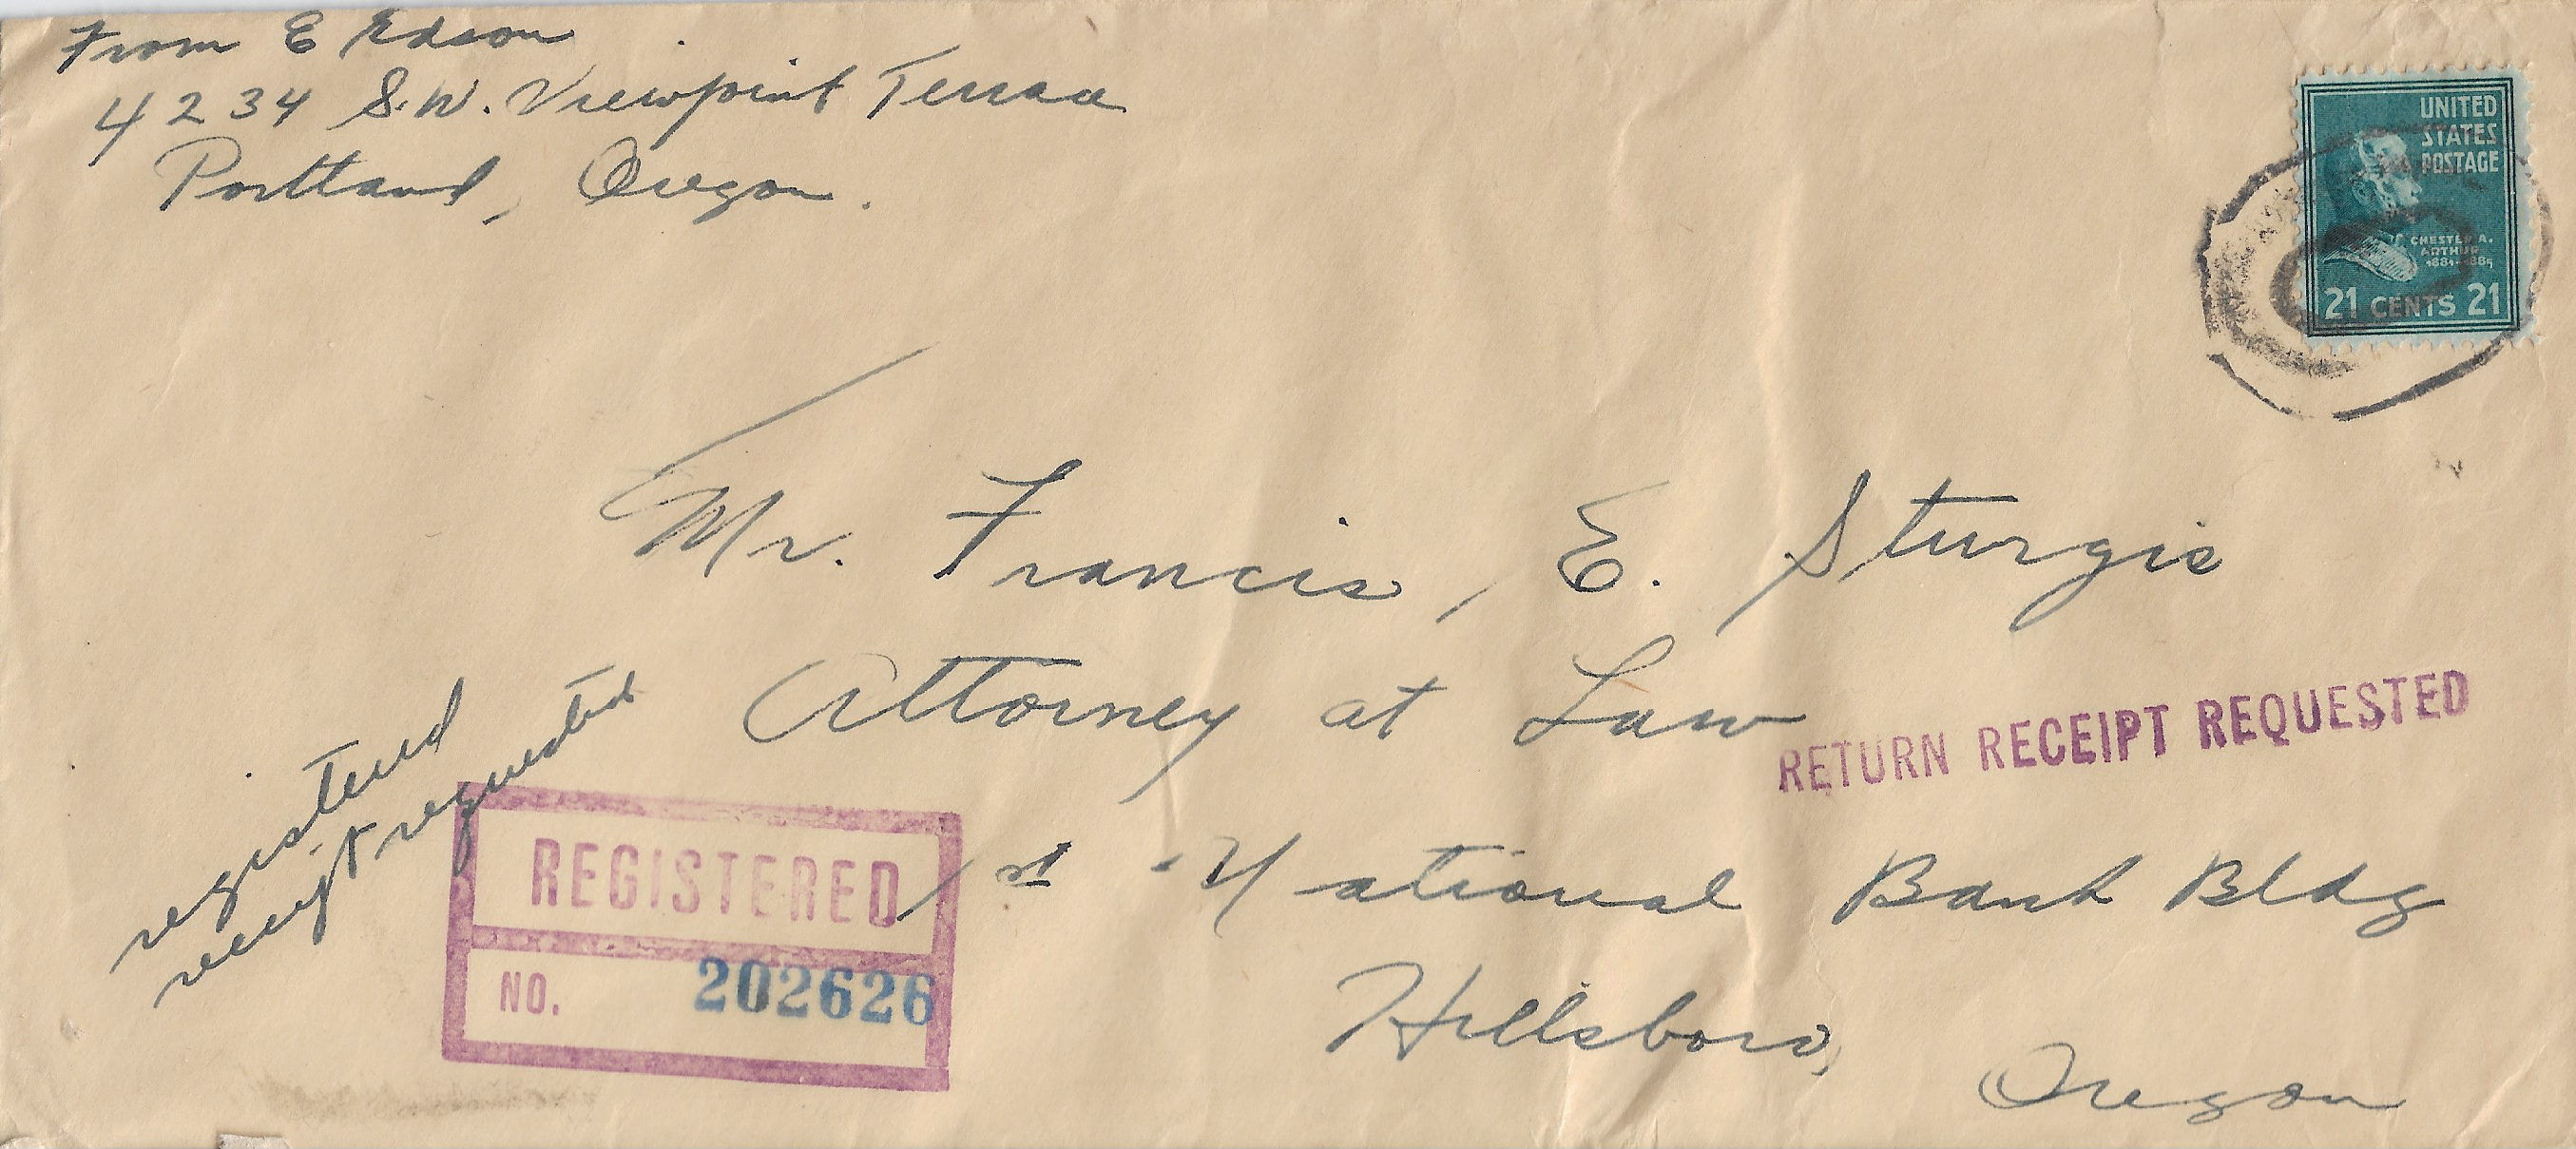 From E Edson
4234 S.W. Viewpoint Terrace
Portland, Oregon.
UNITED
STATES
POSTAGE
CHESTER A.
ARTHUR
1881-1885
21 CENTS 21
Mr. Francis, E. Sturgis
Attorney at Law
RETURN RECEIPT REQUESTED
registered
receipt requested
REGISTERED
NO. 202626
1st National Bank Bldg
Hillsboro,
Oregon